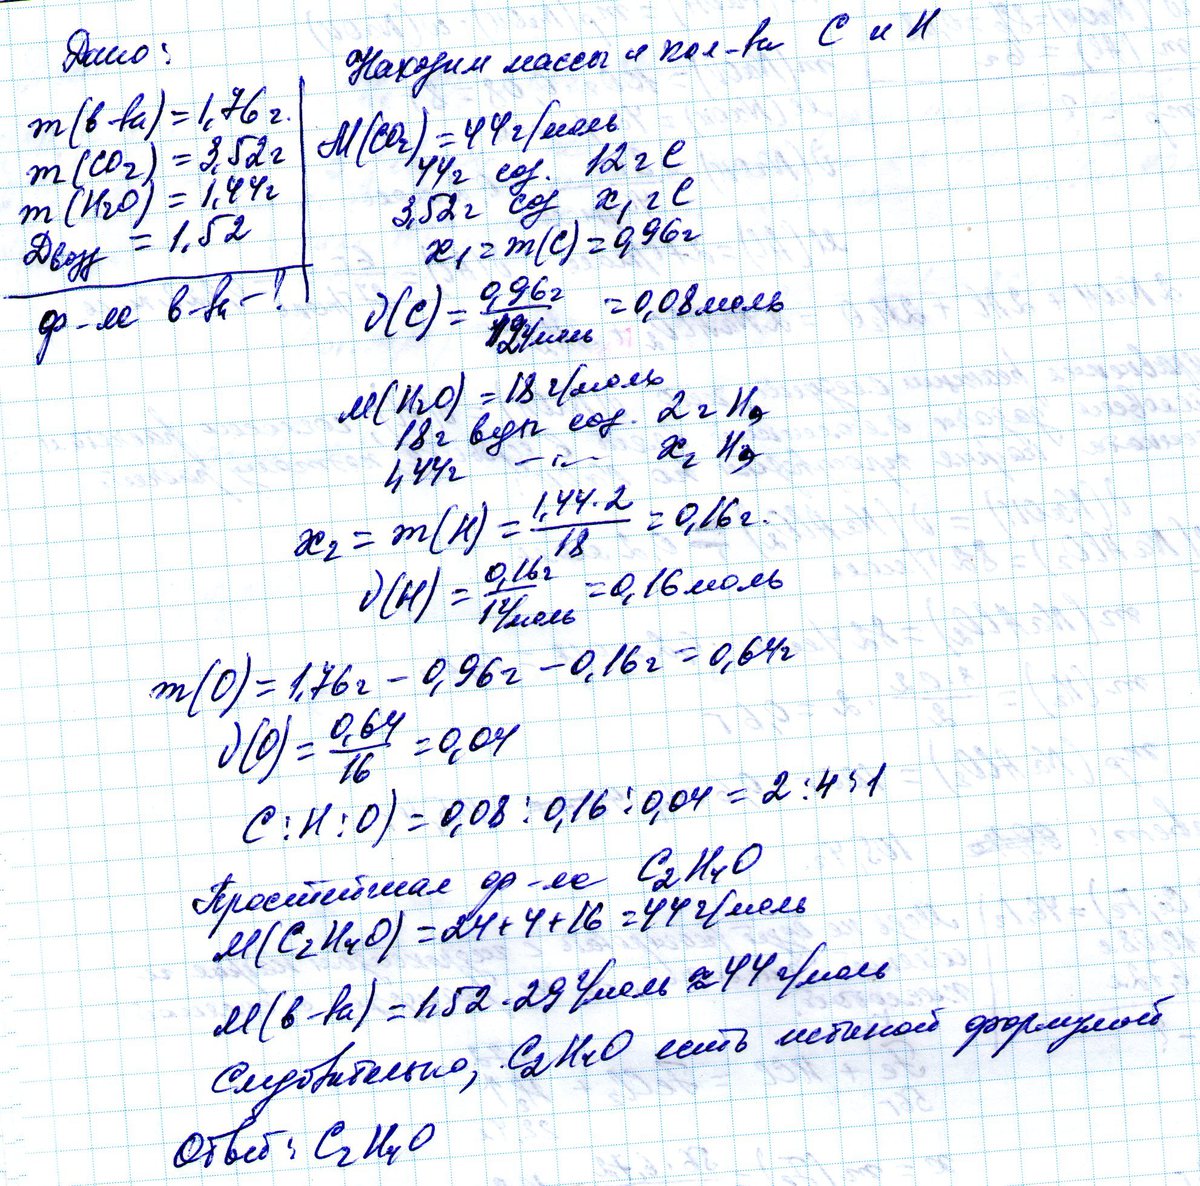 Дано:
m(в-ва) = 1,76 г.
m(CO2) = 3,52 г
m(H2O) = 1,44 г
Двозд = 1.52
ф-ла в-ва - ?
Находим массы и кол-ва C и H
M(CO2) = 44 г/моль
44 г сод. 12 г C
3,52 г сод x1 г C
x1 = m(C) = 0,96 г
ν(C) = 0,96 г / 12 г/моль = 0,08 моль
M(H2O) = 18 г/моль
18 г воды сод. 2 г H
1,44 г —„— x2 H
x2 = m(H) = 1,44·2 / 18 = 0,16 г.
ν(H) = 0,16 г / 1 г/моль = 0,16 моль
m(O) = 1,76 г - 0,96 г - 0,16 г = 0,64 г
ν(O) = 0,64 / 16 = 0,04
C : H : O) = 0,08 : 0,16 : 0,04 = 2 : 4 : 1
Простейшая ф-ла C2H4O
M(C2H4O) = 24 + 4 + 16 = 44 г/моль
M(в-ва) = 1.52 · 29 г/моль ≈ 44 г/моль
Следовательно, C2H4O есть истиной формулой
Ответ: C2H4O